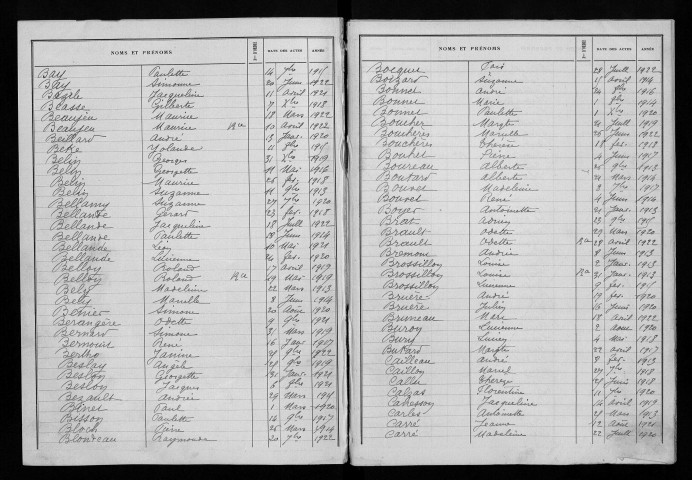 NOMS ET PRÉNOMS DATE DES ACTES ANNÉE
Bay Paulette 14
Bay Simonne 20 Juin 1922
Bazile Jacqueline 11 Avril 1921
Béasse Gilberte 7 Xbre 1918
Beausieu Maurice 18 Mars 1922
Beausieu Maurice Rca 10 Août 1922
Beillard André 13 Janv. 1920
Beke Yolande 11
Belin Georges 31 Xbre 1919
Belin Georgette 19 Mai 1916
Belin Maurice 26 fév. 1918
Belin Suzanne 11 9bre 1913
Bellamy Suzanne 27 1920
Bellande Gérard 23 fév. 1918
Bellande Jacqueline 18 Juill 1922
Bellande Paulette 18 Juin 1914
Bellande Léon 10 Mai 1921
Bellande Lucienne 24 fév. 1920
Belloy Roland 17 Avril 1919
Belloy Roland Rca 29 Mai
Bely Madeleine 22 Mars 1913
Bely Marielle 8 Juin 1914
Benier Simone 20 Août 1920
Bérangère Odette 9 9bre 1921
Bernard Simone 31 Mars 1919
Bernouis René 16 Janv. 1917
Bertho Janine 21 9bre 1922
Beslay Angèle 1919
Beslon Georgette 31 Janv. 1921
Beslon Jacques 6 9bre 1921
Bezault Andrée 29 Mars
Binet Paul 1 Mars 1920
Bisson Paulette 14 9bre 1917
Bloch 26 Mars 1914
Blondeau Raymonde 20 1922
NOMS ET PRÉNOMS DATE DES ACTES ANNÉE
Bocquie 28 Juill 1922
Boizard Suzanne 11 Avril 1914
Bonnet André 24 8bre 1916
Bonnet Marie 1 1914
Bonnet Paulette 1 Xbre 1920
Boucher Margte 24 Juill 1919
Bouchères Marielle 26 Juin 1922
Bouchères Thérèse 18 fév. 1913
Bouhet Pierre 4 Juin 1917
Boureau Alberte 25 9bre 1913
Boutard Alberte 21 Mars 1914
Bouvet Madeleine 3 1917
Bouvet René 4 Juin 1914
Boyer Antoinette 21 Janv. 1913
Brat 23 9bre
Brault Odette 29 Mars 1920
Brault Odette Rca 28 Avril 1922
Bremont Andrée 8 Juin 1913
Brossillon Louise 2 Janv. 1913
Brossillon Louise Rca 31 Janv. 1913
Bruère Lucienne 9 fév.
Bruère André 19 fév. 1920
Bruère Julien 26 Juin 1920
Bruneau Marc 18 Avril 1922
Buroy Lucienne 2 Août 1920
Bury Lucien 4 Mai 1918
Butard Margte 22 Avril 1917
Cailleau André 2 fév. 1913
Caillon Marcel 27 1918
Callu Thérèse 28 Juin 1918
Calzas Florentine 11 1920
Cancesson Jacqueline 14 Avril 1919
Carles Antoinette 28 Mars 1913
Carré Jeanne 12 Août 1921
Carré Madeleine 22 Juill 1920